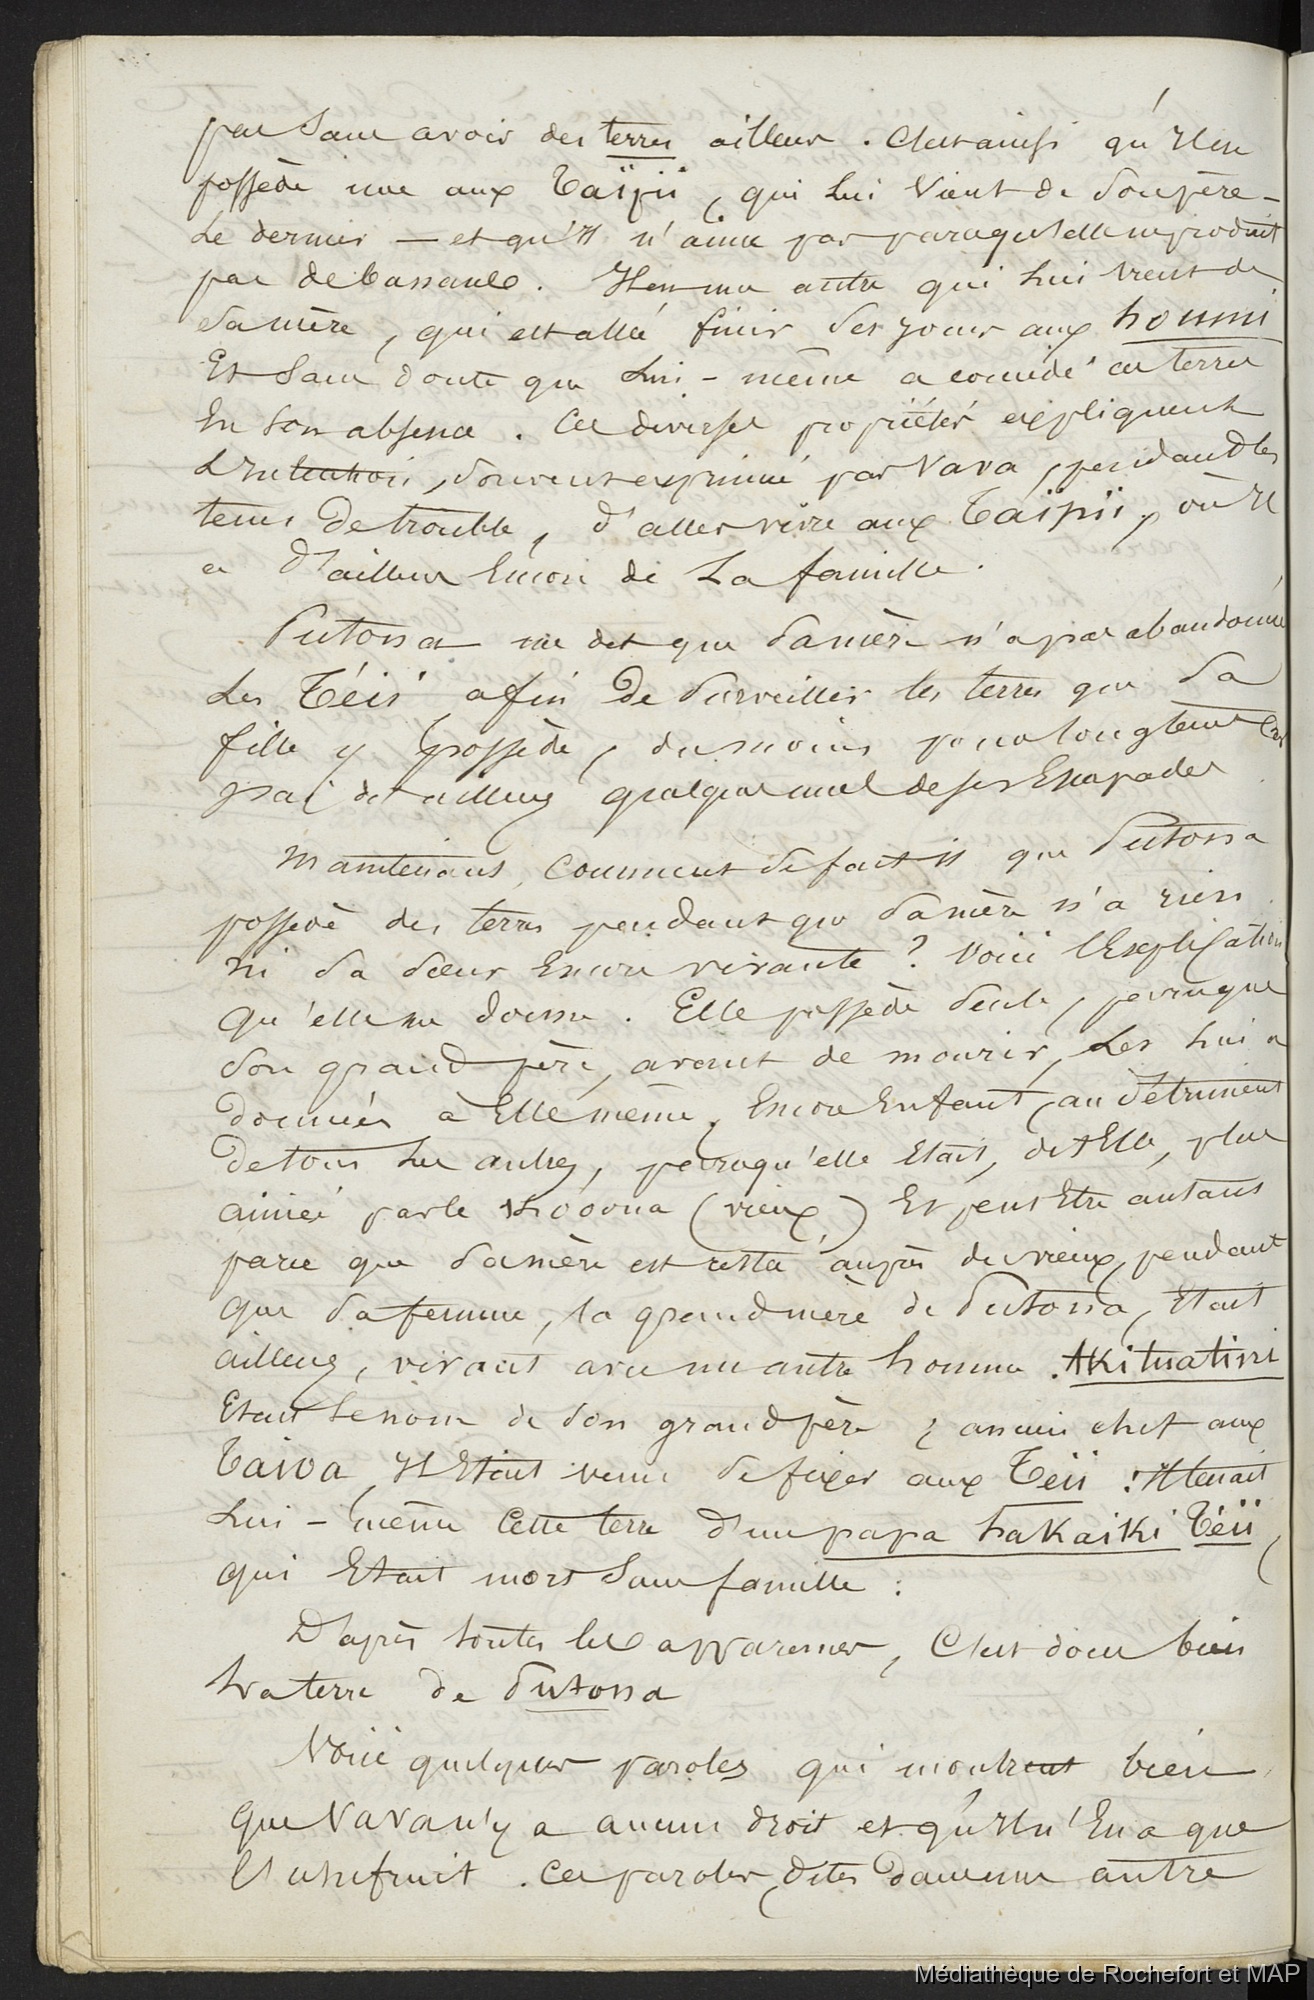 pas sans avoir des terres ailleurs. C'est ainsi qu'il en
possède une aux Taïpii, qui lui vient de son père
le dernier — et qu'il n'aime pas parcequ'elle ne produit
pas de bananes. Il en une autre qui lui vient de
sa mère, qui est allée finir ses jours aux houmi
Et sans doute que lui-même a concédé ces terres
En son absence. Ces diverses propriétés expliquent
L'intention, souvent exprimé par Vava, pendant les
tems De trouble, d'aller vivre aux Taïpii, où Il
a D'ailleurs Encore de La famille.
Putona me dit que sa mère n'a pas abandonné
Les Téii afin De surveiller les terres que sa
fille y possède, du moins pour longtems
d'ailleurs quelques unes de ses Escapades
Maintenant, comment se fait il que Putona
possède des terres pendant que sa mère n'a rien
ni sa sœur Encore vivante ? Voici l'Explication
qu'elle me donne. Elle possède seule, parceque
son grand père, avant de mourir, Les lui a
données à Elle même, Encore Enfant, au Détriment
De tous Les autres, parcequ'elle Etait, dit Elle, plus
aimée par le kooua (vieux) Et peut Etre autant
parce que sa mère est resta auprès du vieux, pendant
que sa femme, la grand mère de Putona, Etait
ailleurs, vivant avec un autre homme. Akituatini
Etait Le nom de son grand père, ancien chef aux
Taioa, Il Etait venu se fixer aux Teii. Il tenait
Lui-même Cette terre d'un papa hakaiki Téii,
qui Etait mort sans famille :
D'après toutes les apparences, C'est donc bien
La terre de Putona
Voici quelques paroles qui montrent bien
que Vava n'y a aucun droit et qu'Il n'En a que
l'usufruit. Ces paroles, dites Dans une autre
Médiathèque de Rochefort et MAP